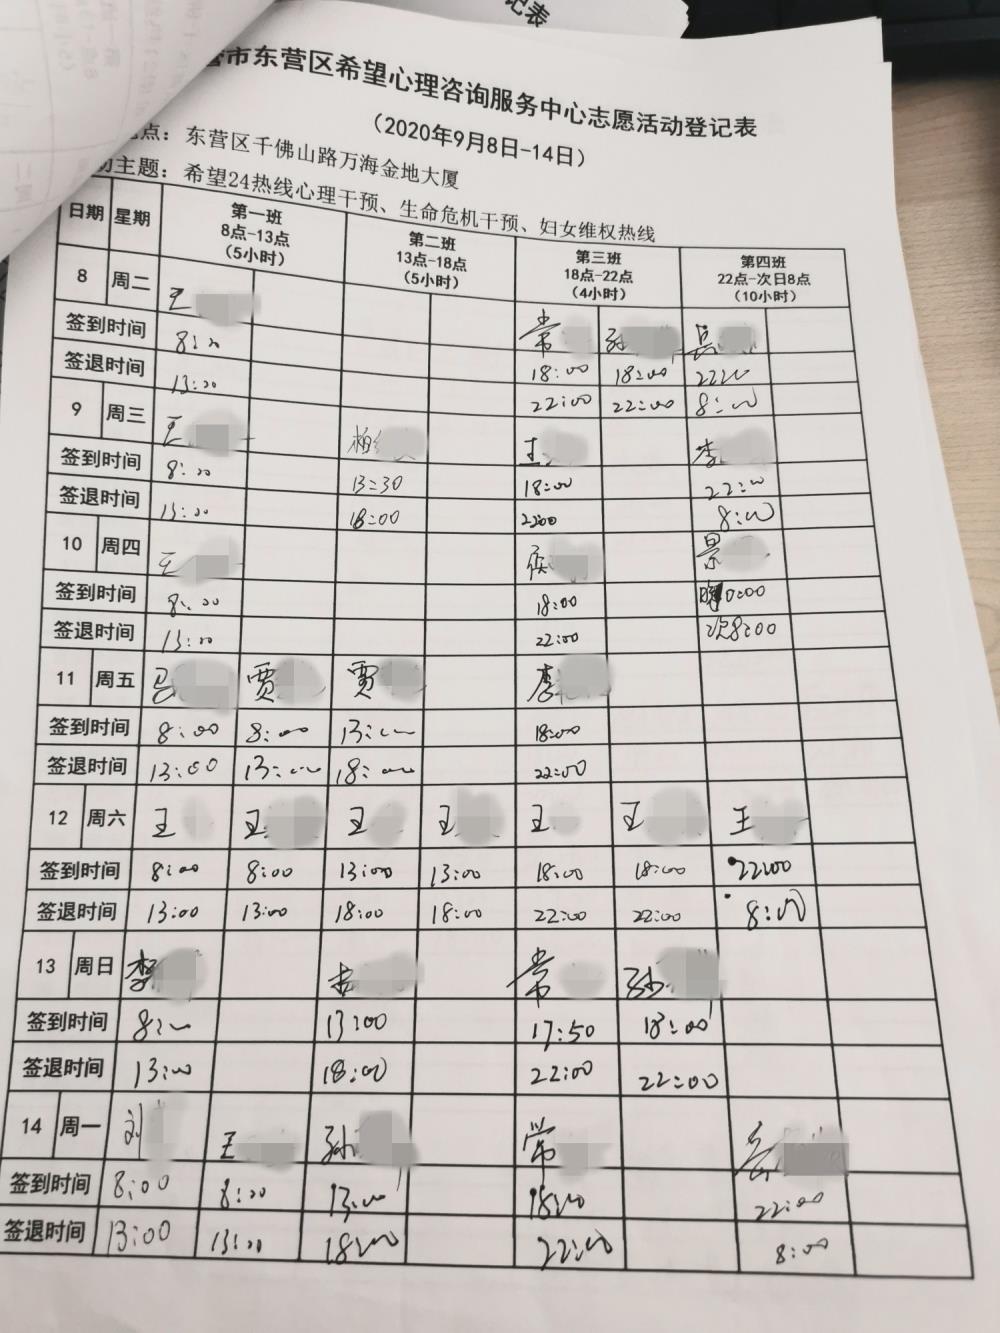 记表
营市东营区希望心理咨询服务中心志愿活动登记表
（2020年9月8日-14日）
点：东营区千佛山路万海金地大厦
主题：希望24热线心理干预、生命危机干预、妇女维权热线
日期 星期 第一班 8点-13点 （5小时） 第二班 13点-18点 （5小时） 第三班 18点-22点 （4小时） 第四班 22点-次日8点 （10小时）
8 周二 王 常 孙 吴
签到时间 8:00 18:00 18:00 22:00
签退时间 13:00 22:00 22:00 8:00
9 周三 王 柏 王 李
签到时间 8:00 13:30 18:00 22:00
签退时间 13:00 18:00 22:00 8:00
10 周四 王 侯 景
签到时间 8:00 18:00 0:00
签退时间 13:00 22:00 次8:00
11 周五 吕 贾 贾 李
签到时间 8:00 8:00 13:00 18:00
签退时间 13:00 13:00 18:00 22:00
12 周六 王 王 王 王 王 王 王
签到时间 8:00 8:00 13:00 13:00 18:00 18:00 22:00
签退时间 13:00 13:00 18:00 18:00 22:00 22:00 8:00
13 周日 李 常 孙
签到时间 8:00 13:00 17:50 18:00
签退时间 13:00 18:00 22:00 22:00
14 周一 刘 王 孙 常
签到时间 8:00 8:00 13:00 18:00 22:00
签退时间 13:00 13:00 18:00 22:00 8:00